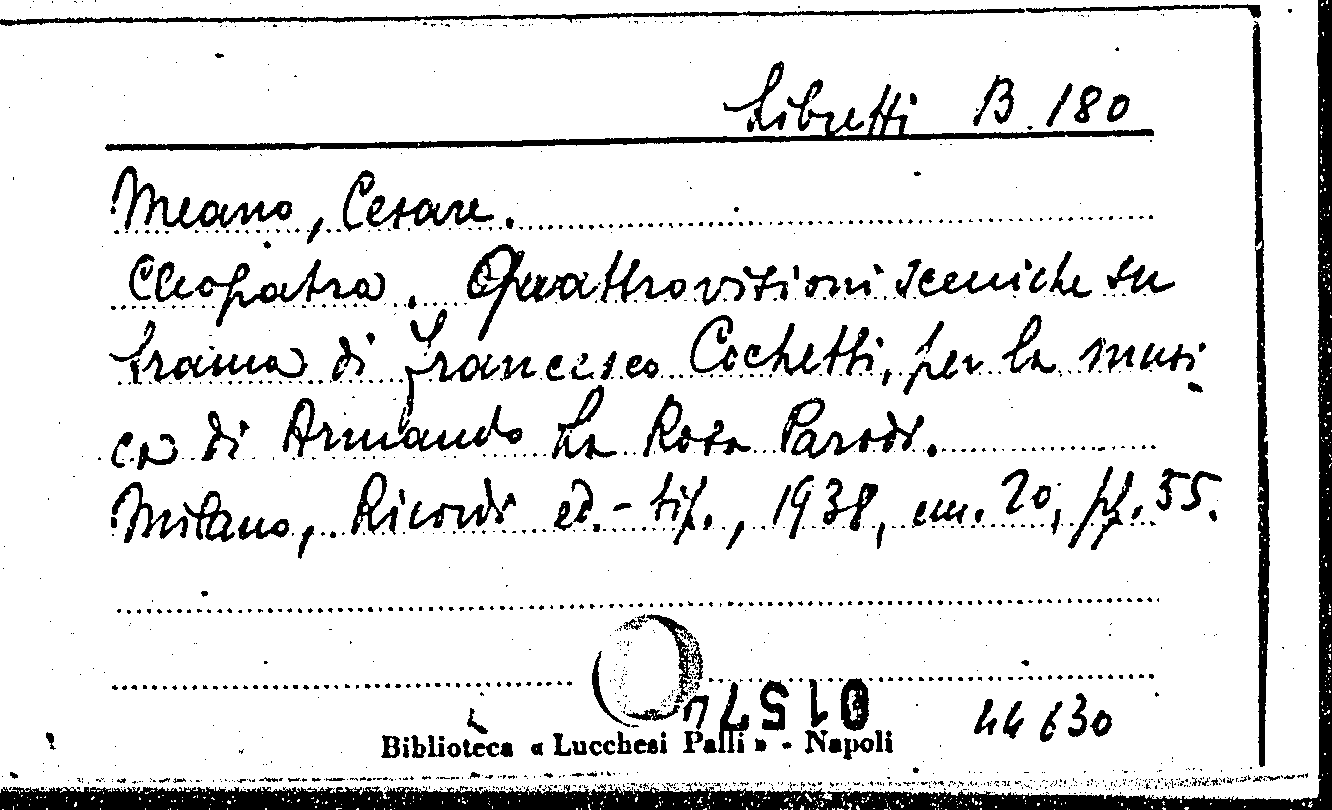 Libretti B. 180
Meano, Cesare.
Cleopatra. Quattro visioni sceniche su
trama di Francesco Cochetti, per la musi
ca di Armando La Rosa Parodi.
Milano, Ricordi ed.-tip., 1938, cm. 20, pp. 55.
44630
Biblioteca « Lucchesi Palli » - Napoli